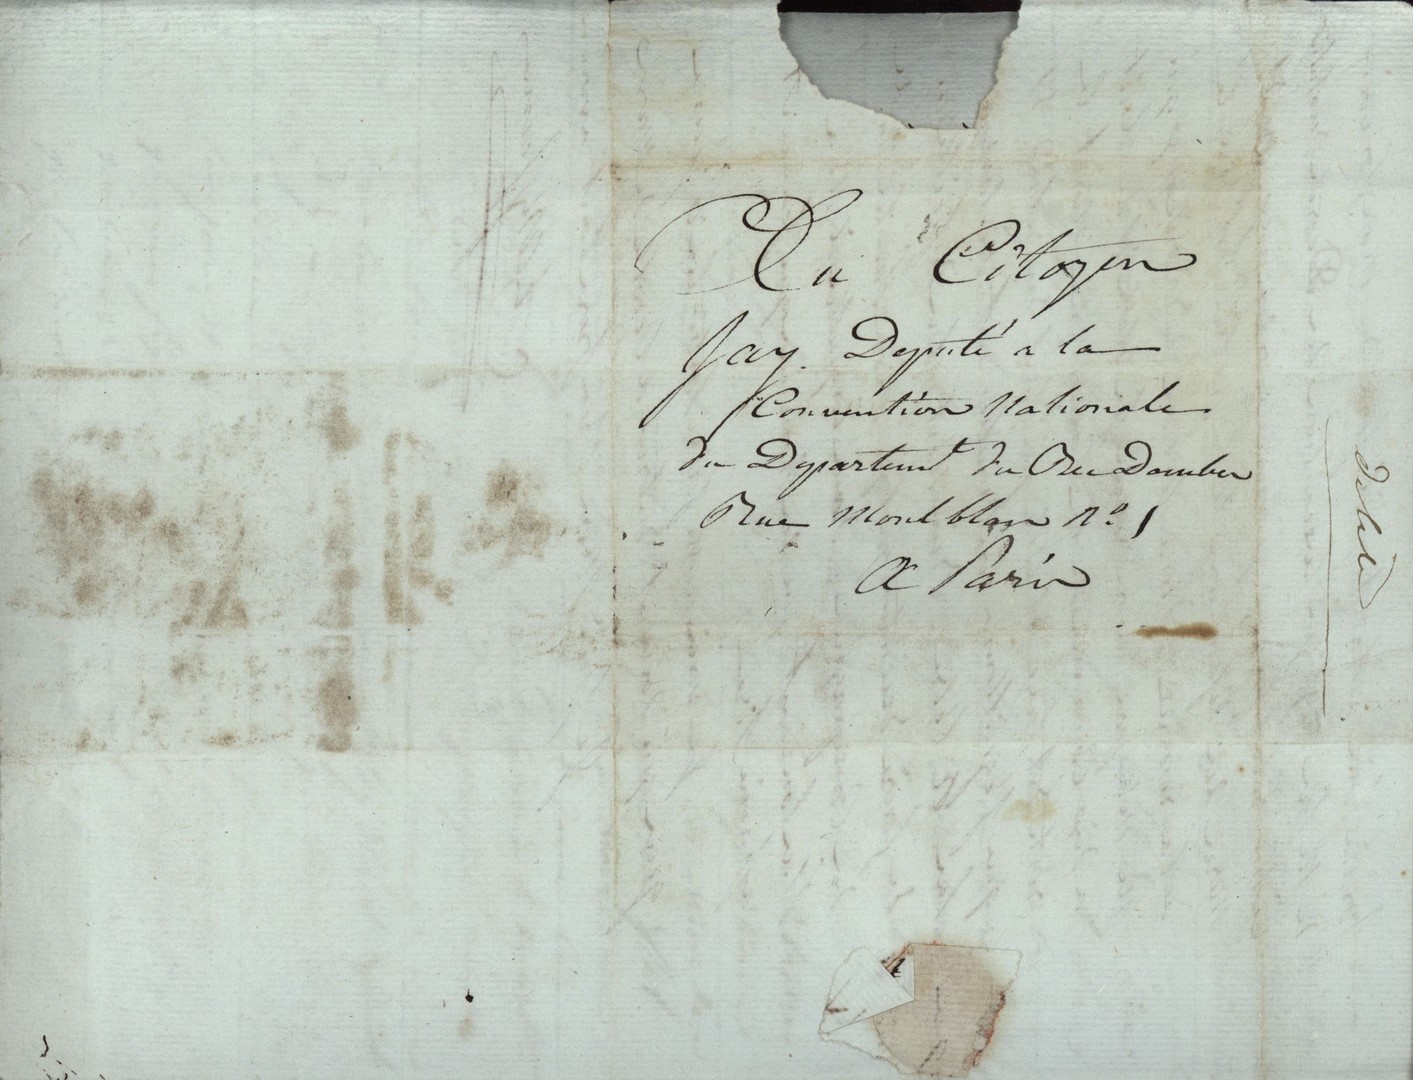 Au Citoyen
Jay. Deputé a la
Convention Nationale
du Departemt du Puidombes
Rue Montblan No. 1
A Paris